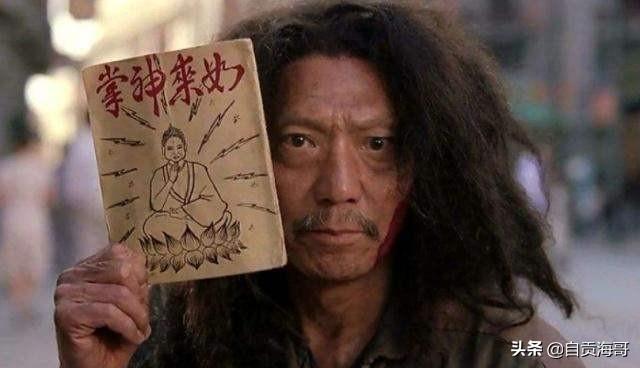 如來神掌
头条 @自贡海哥